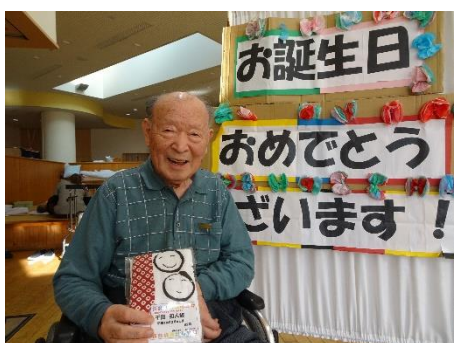 お誕生日
おめでとう
ざいます！